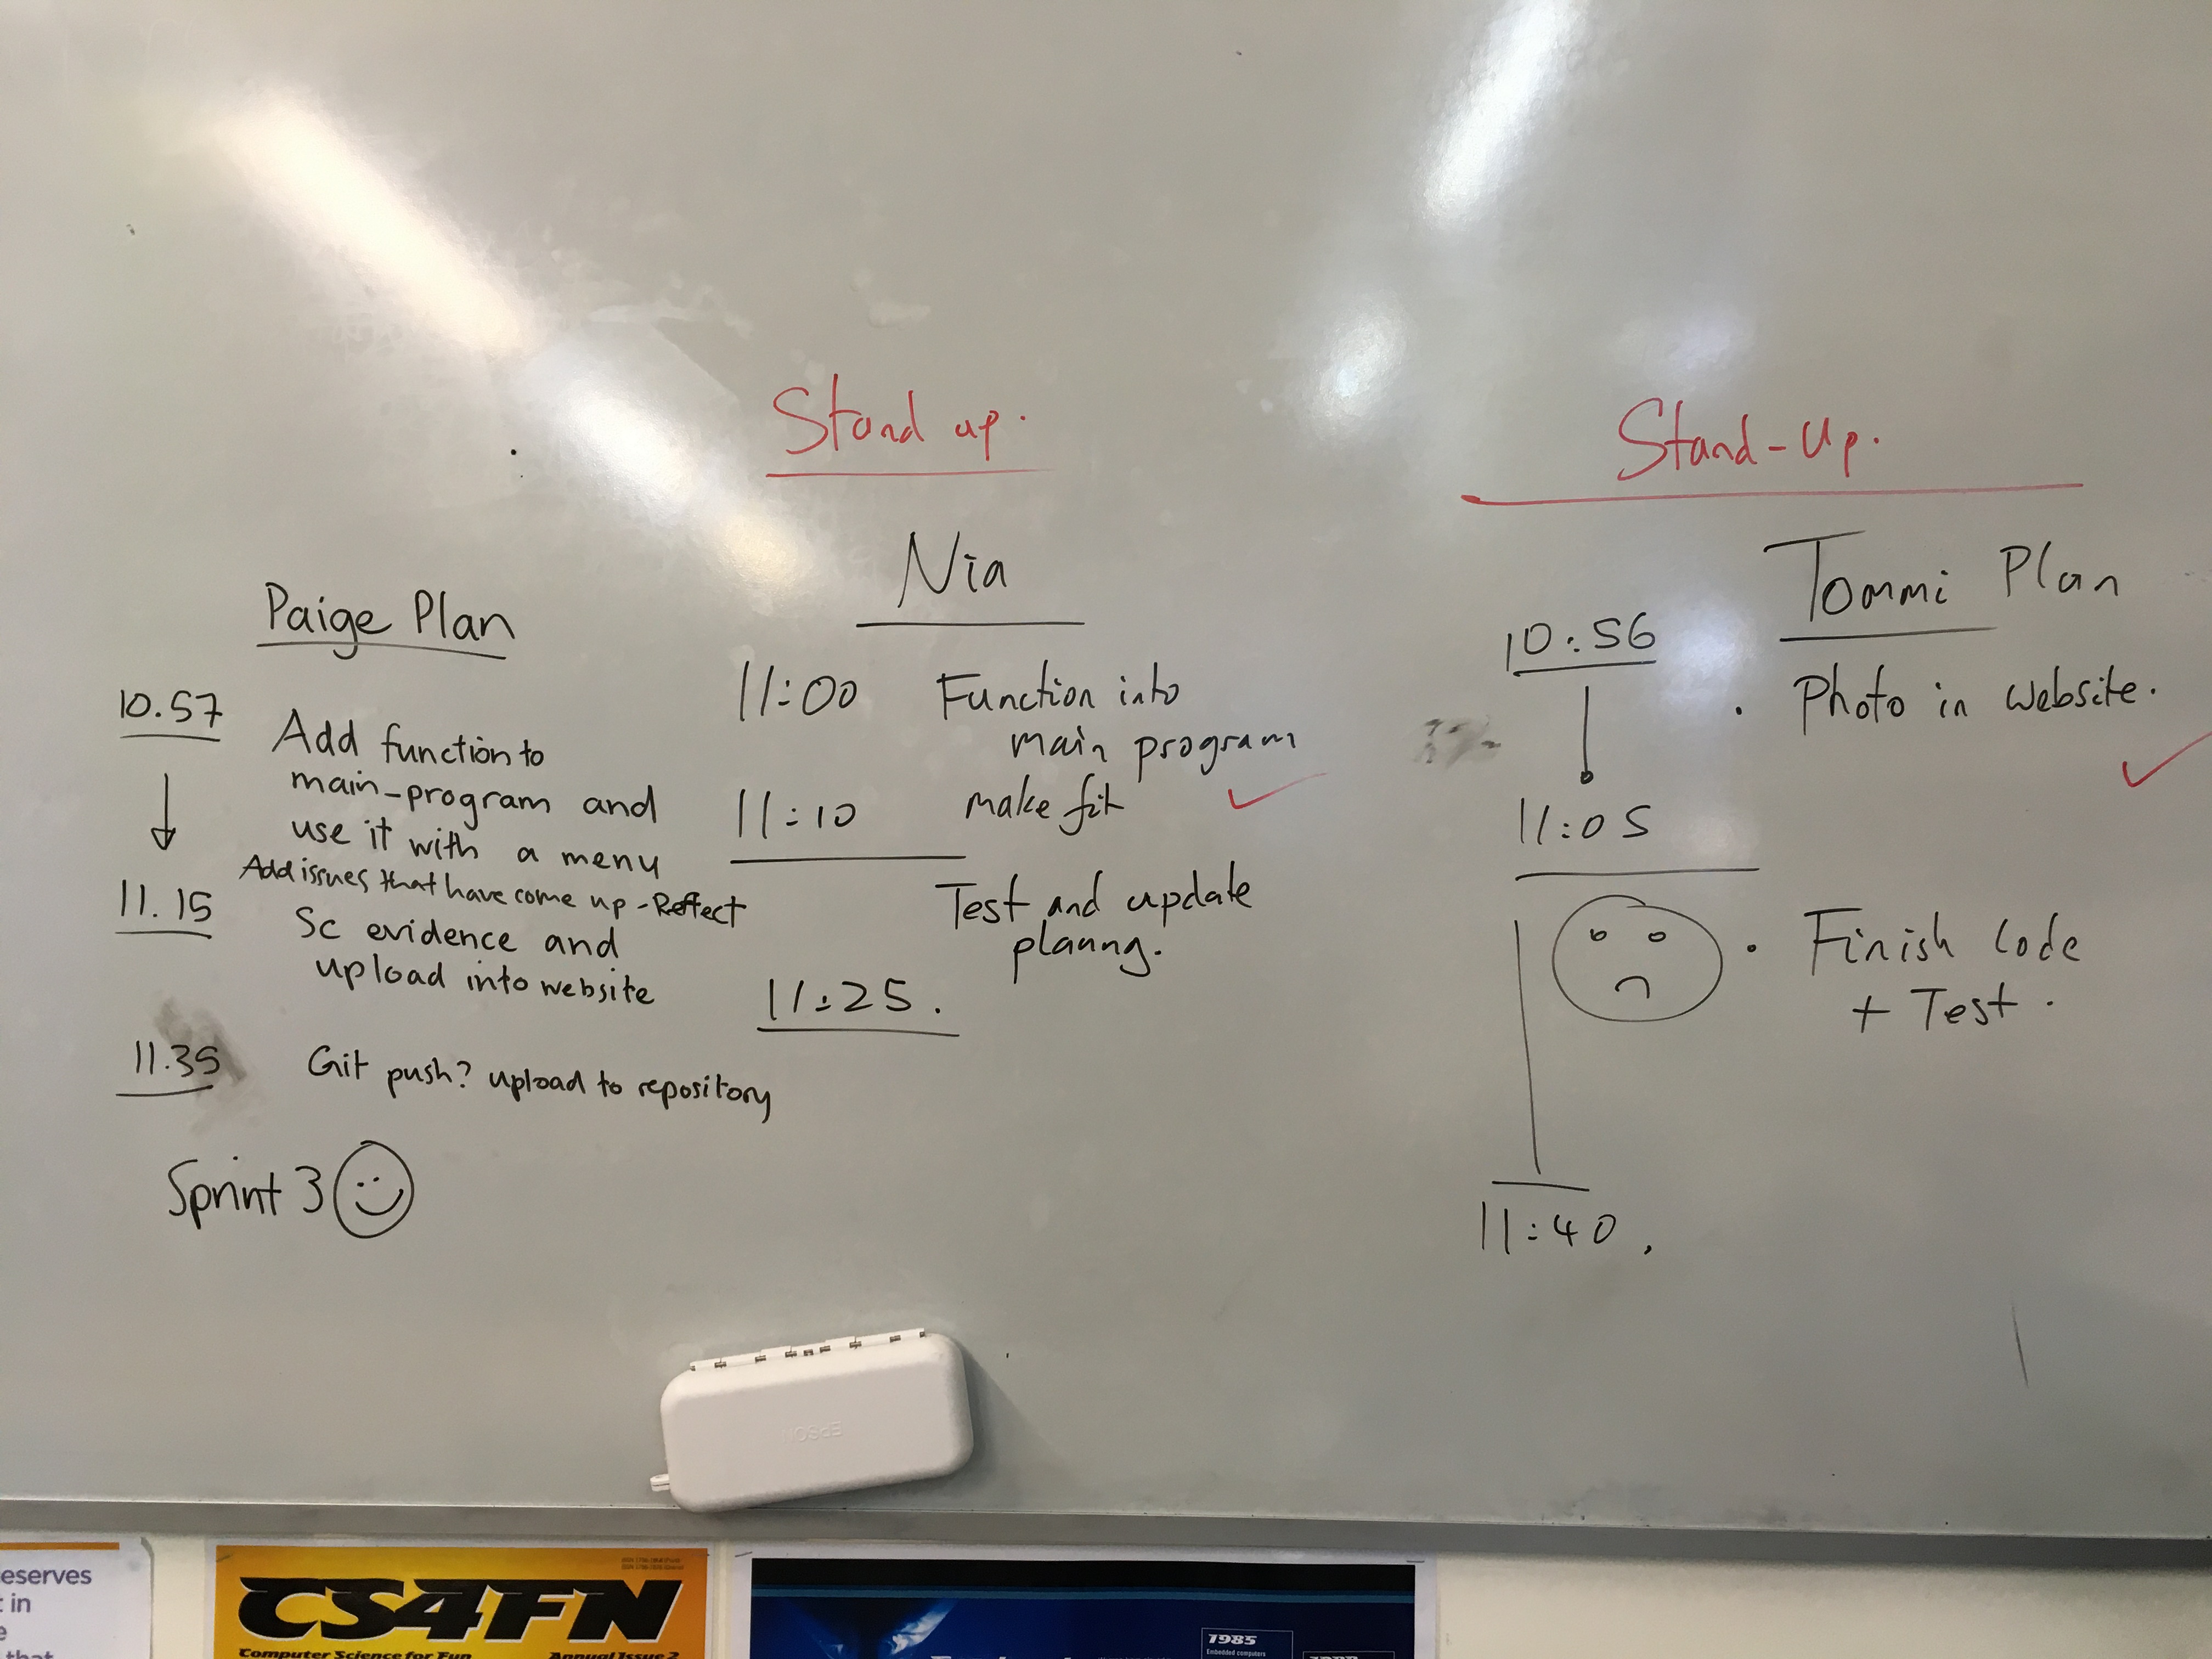 Stand up.
Stand-Up.
Paige Plan
10.57
Add function to
main-program and
use it with a menu
Add issues that have come up - Reflect
11.15
Sc evidence and
upload into website
11.35
Git push? upload to repository
Sprint 3
Nia
11:00 Function into
main program
11:10 make fit
Test and update
planng.
11:25.
Tommi Plan
10:56
• Photo in website.
11:05
• Finish code
+ Test.
11:40.
EPSON
eserves
in
that
CS4FN
Computer Science for Fun Annual Issue 2
1985
Embedded computers